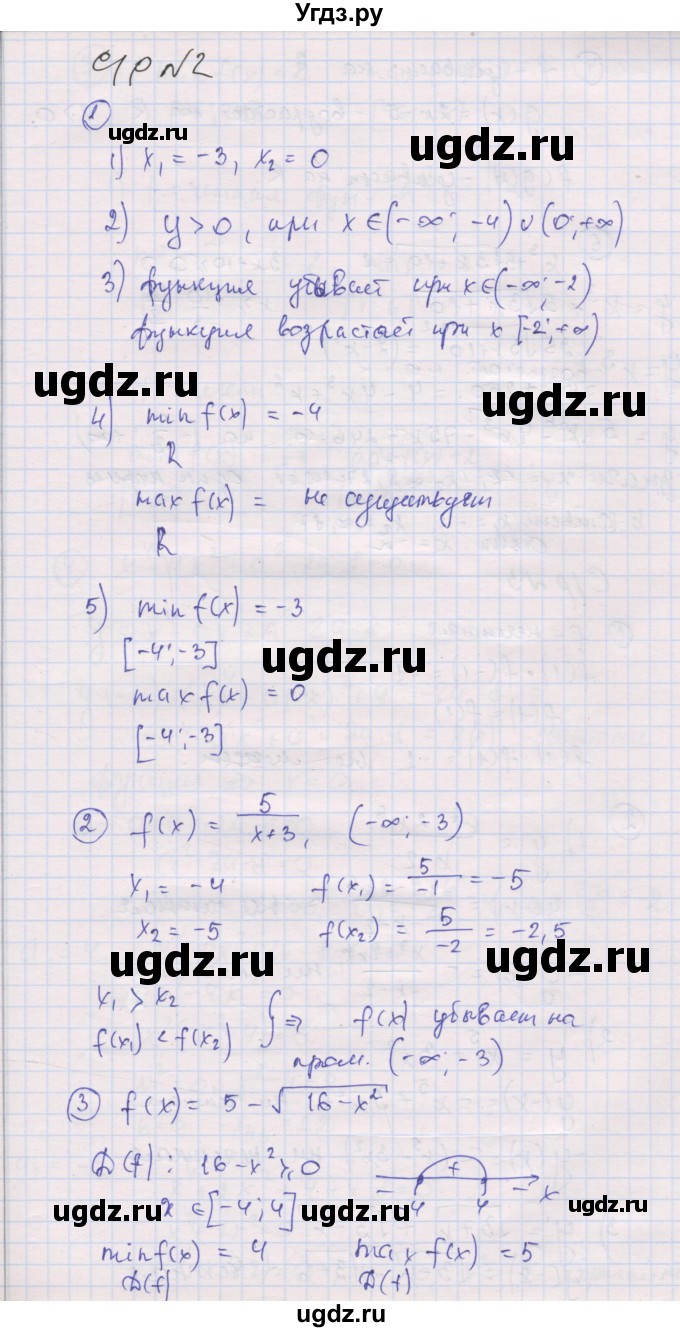 Угдз.ру
С/р №2
① ugdz.ru
1) x₁ = -3, x₂ = 0
2) y > 0, при x ∈ (-∞; -4) ∪ (0; +∞)
3) функция убывает при x ∈ (-∞; -2)
функция возрастает при x [-2; +∞)
ugdz.ru ugdz.ru
4) min f(x) = -4
R
max f(x) = не существует
R
5) min f(x) = -3
[-4; -3] ugdz.ru
max f(x) = 0
[-4; -3]
② f(x) = 5/(x+3), (-∞; -3)
x₁ = -4 f(x₁) = 5/-1 = -5
x₂ = -5 f(x₂) = 5/-2 = -2,5
ugdz.ru ugdz.ru
x₁ > x₂
f(x₁) < f(x₂) } ⇒ f(x) убывает на
пром. (-∞; -3)
③ f(x) = 5 - √(16 - x²)
D(f): 16 - x² ≥ 0 - + - x
-4 4
x ∈ [-4; 4]
ugdz.ru ugdz.ru ugdz.ru
min f(x) = 4 max f(x) = 5
D(f) D(f)
ugdz.ru